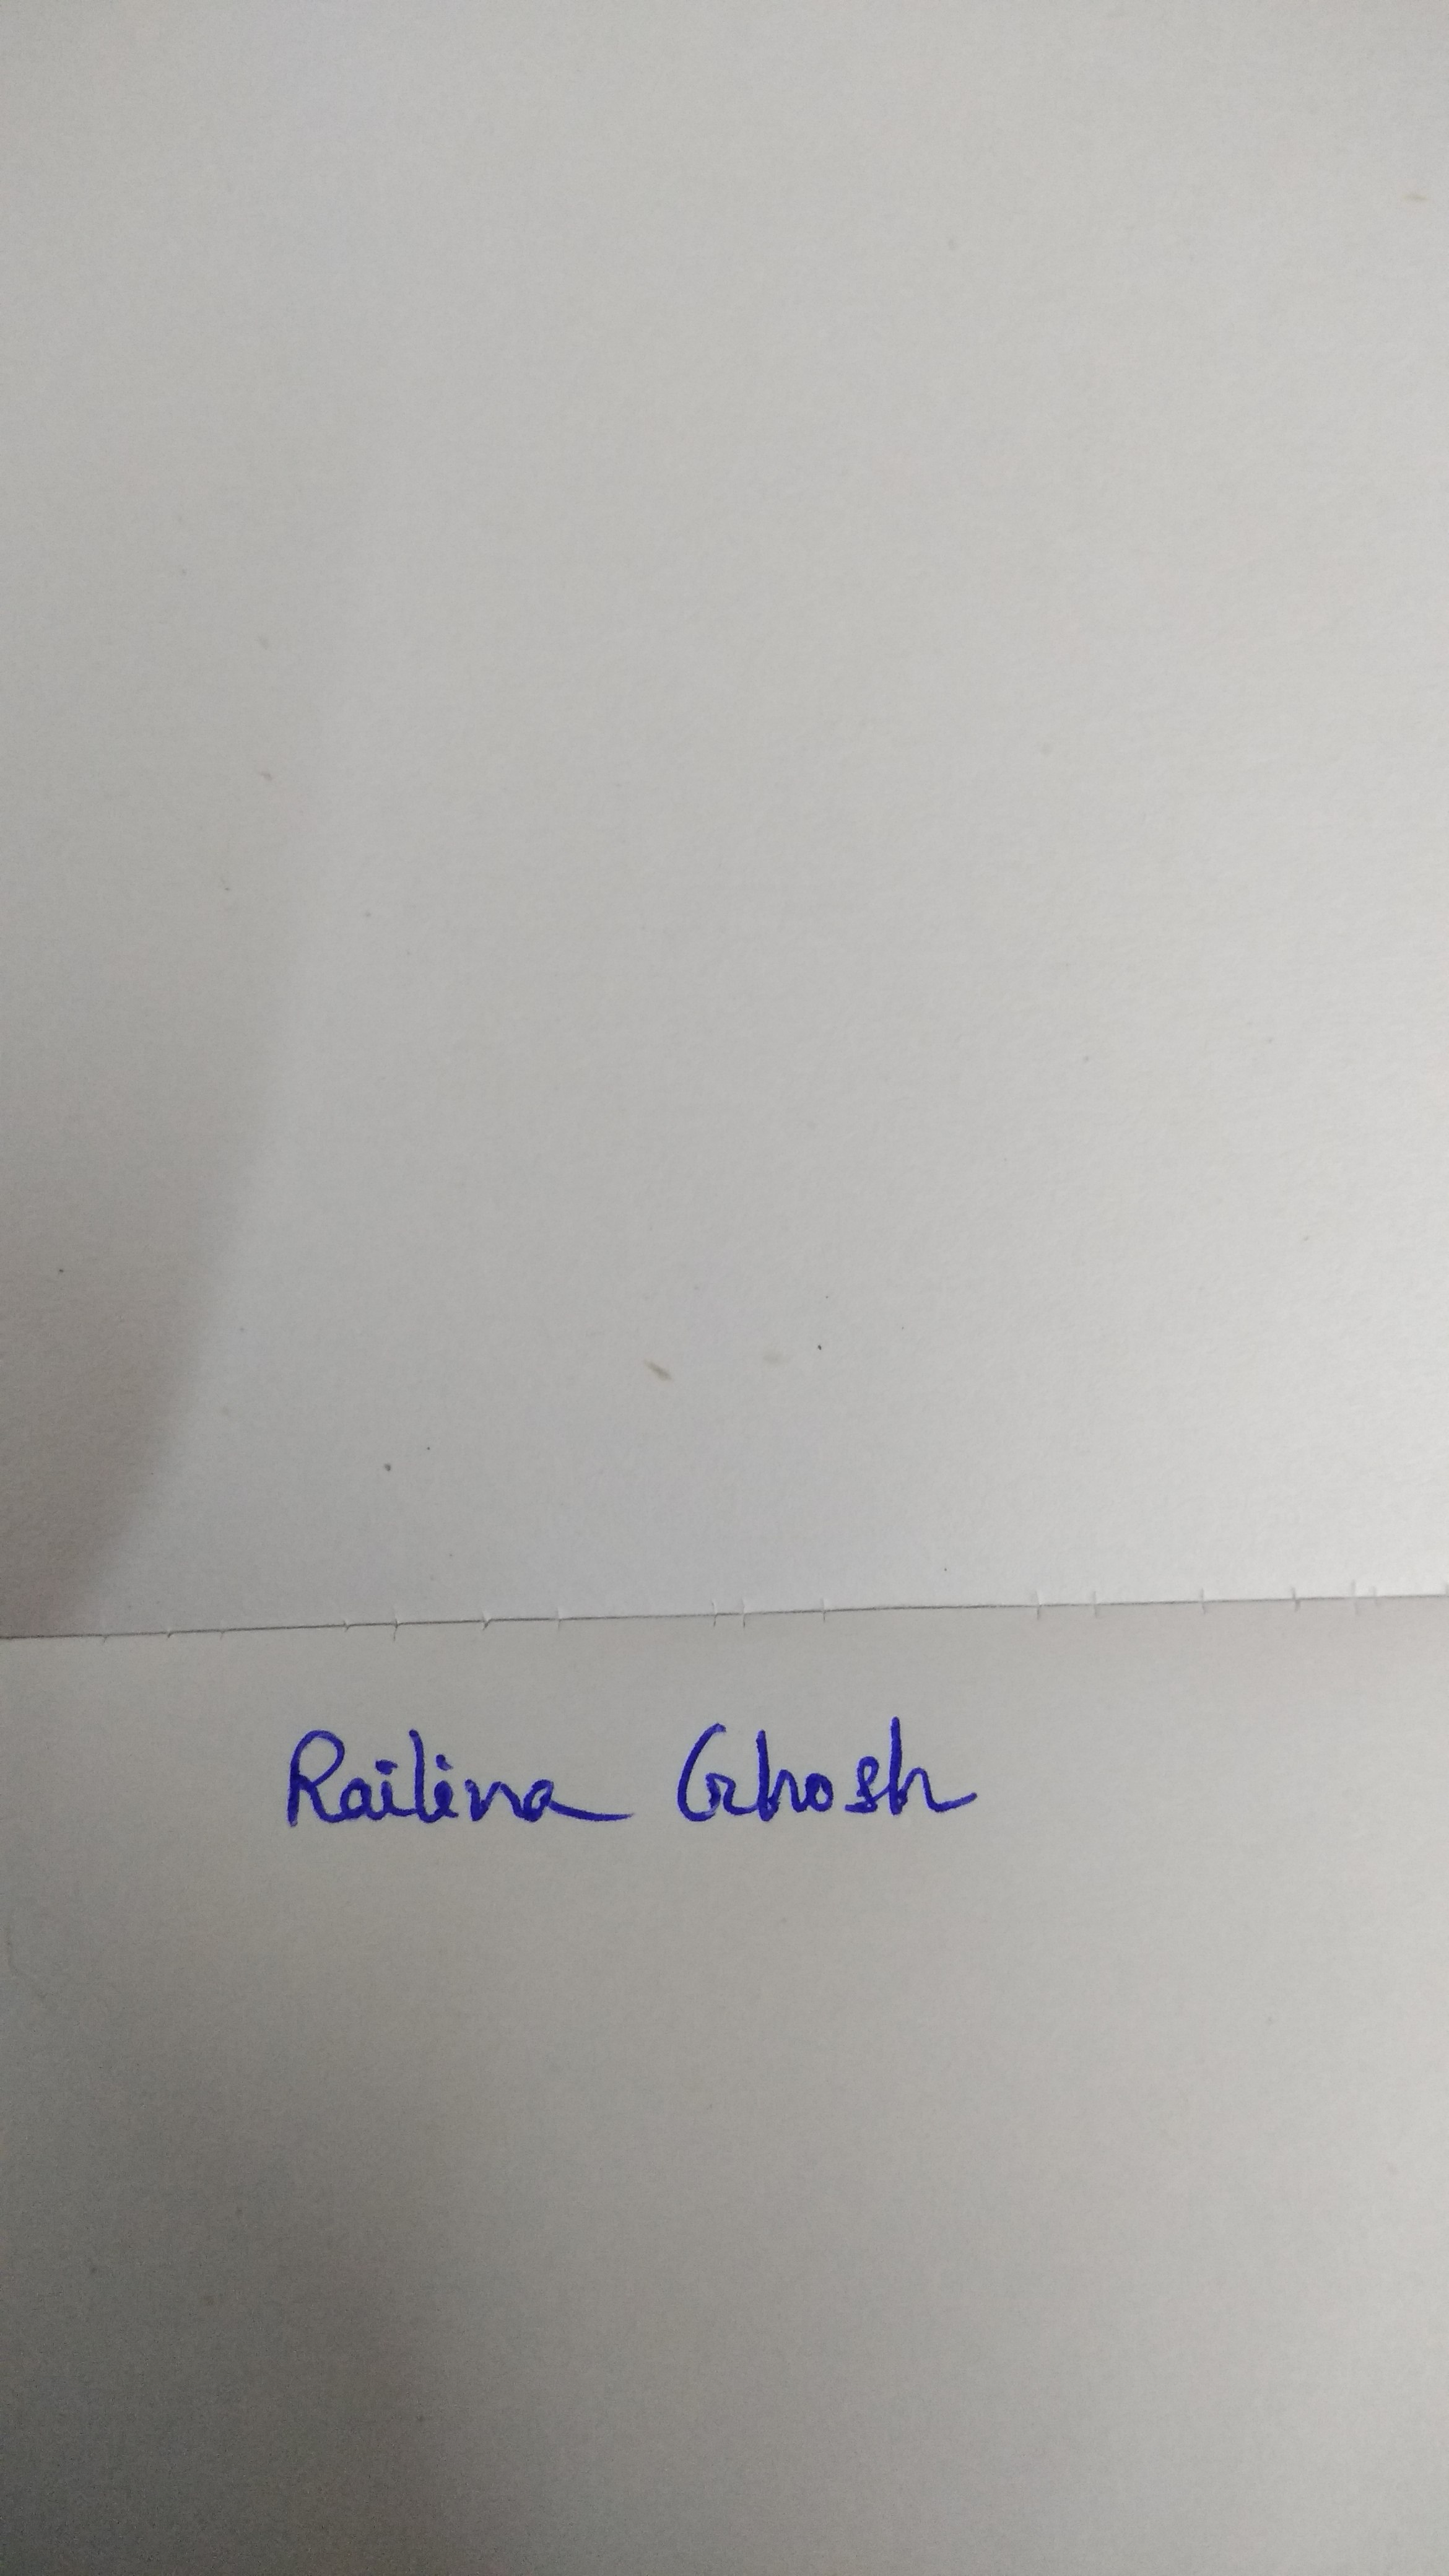 Railina Ghosh